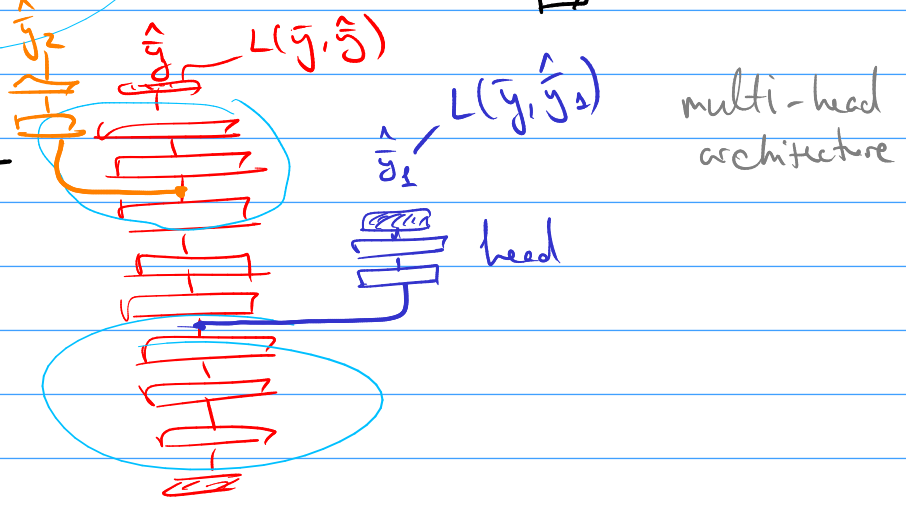 ŷ̄₂
ŷ̄
L(ȳ, ŷ̄)
L(ȳ, ŷ̄₁)
ŷ̄₁
multi-head
architecture
head